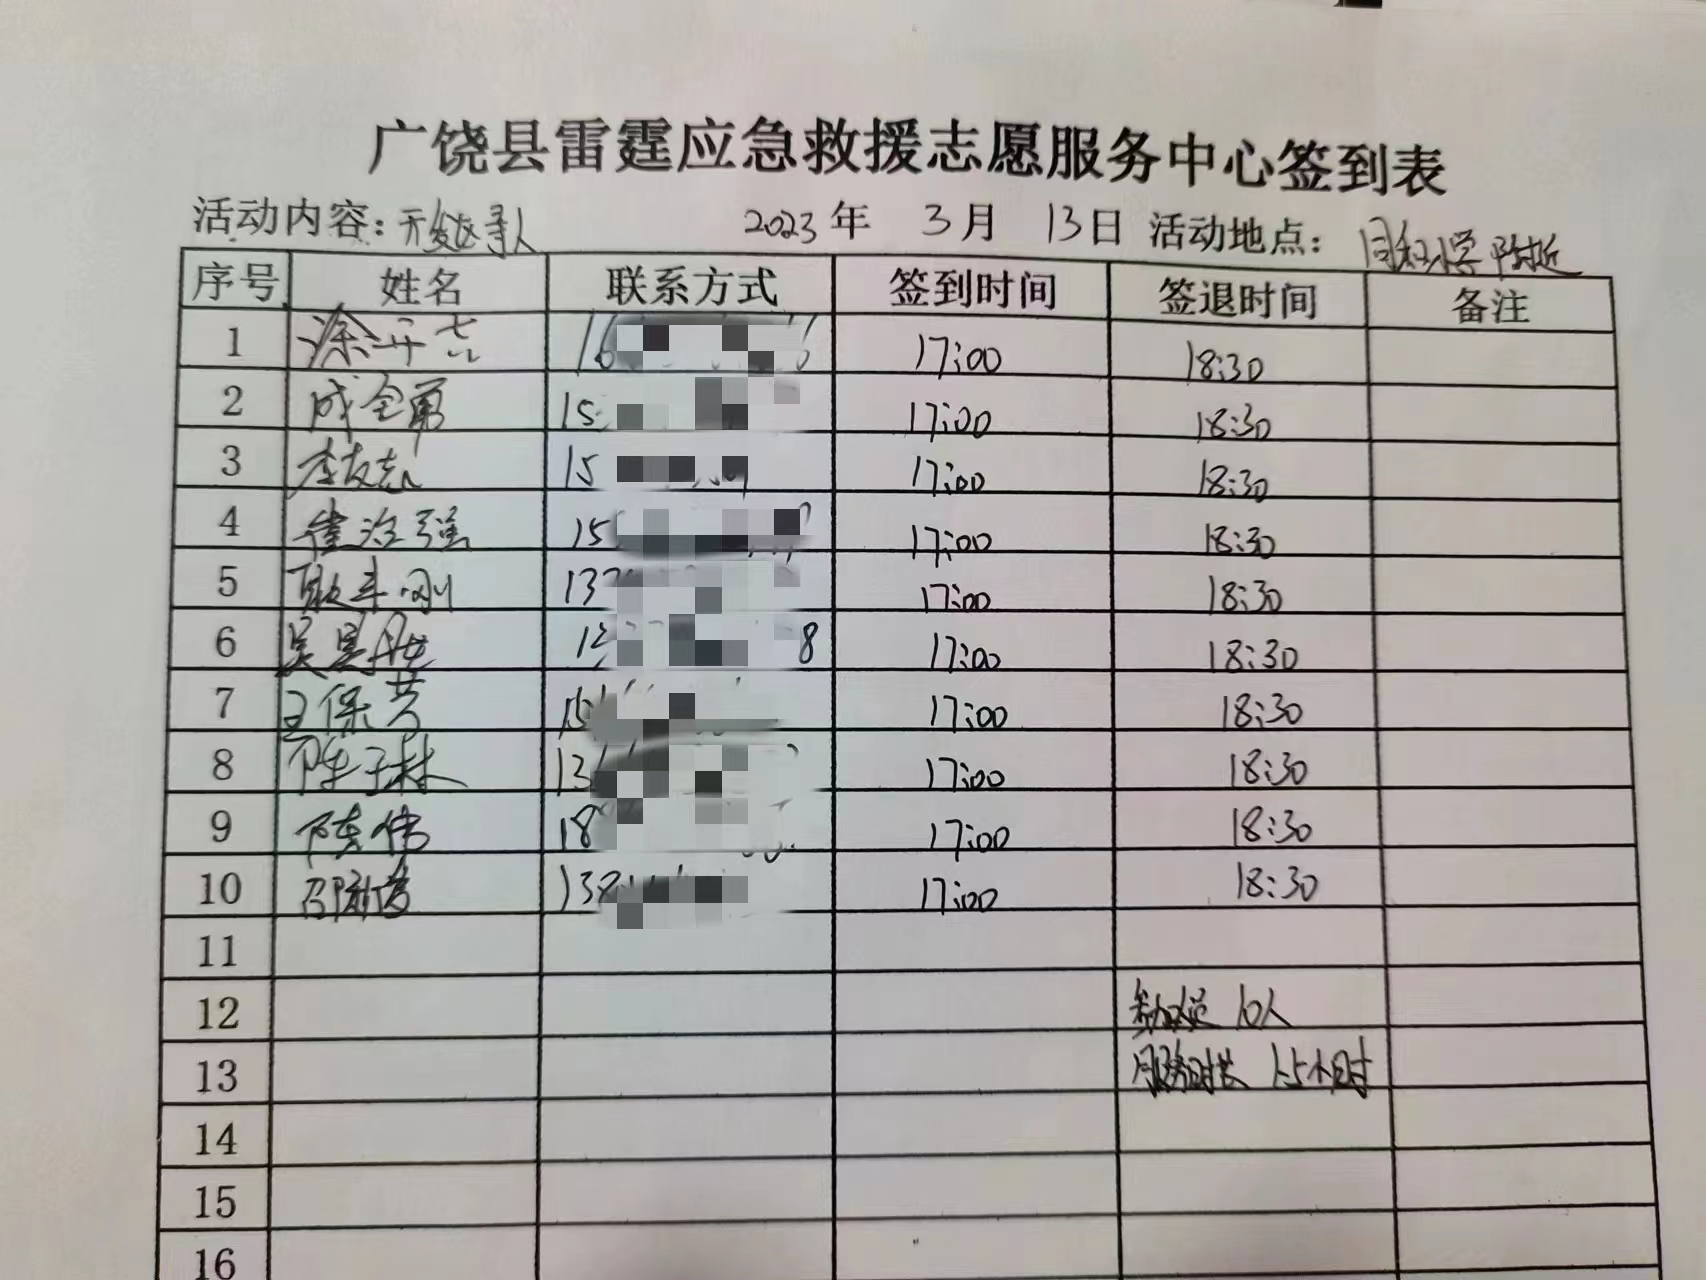 广饶县雷霆应急救援志愿服务中心签到表
活动内容:开发区寻人 2023年 3月 13日 活动地点: 同和小学附近
序号 姓名 联系方式 签到时间 签退时间 备注
1 17:00 18:30
2 成全勇 15 17:00 18:30
3 李友志 15 17:00 18:30
4 崔治强 15 17:00 18:30
5 耿丰刚 137 17:00 18:30
6 8 17:00 18:30
7 王保芳 15 17:00 18:30
8 陈子林 13 17:00 18:30
9 陈伟 18 17:00 18:30
10 138 17:00 18:30
11
12 参加队员 10人
13 服务时长 1.5个小时
14
15
16